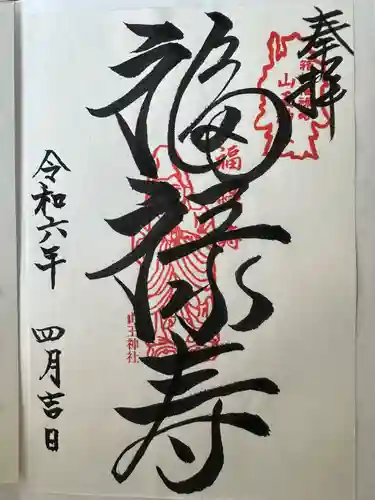 奉拝
福禄寿
福禄寿
山王神社
令和六年 四月吉日